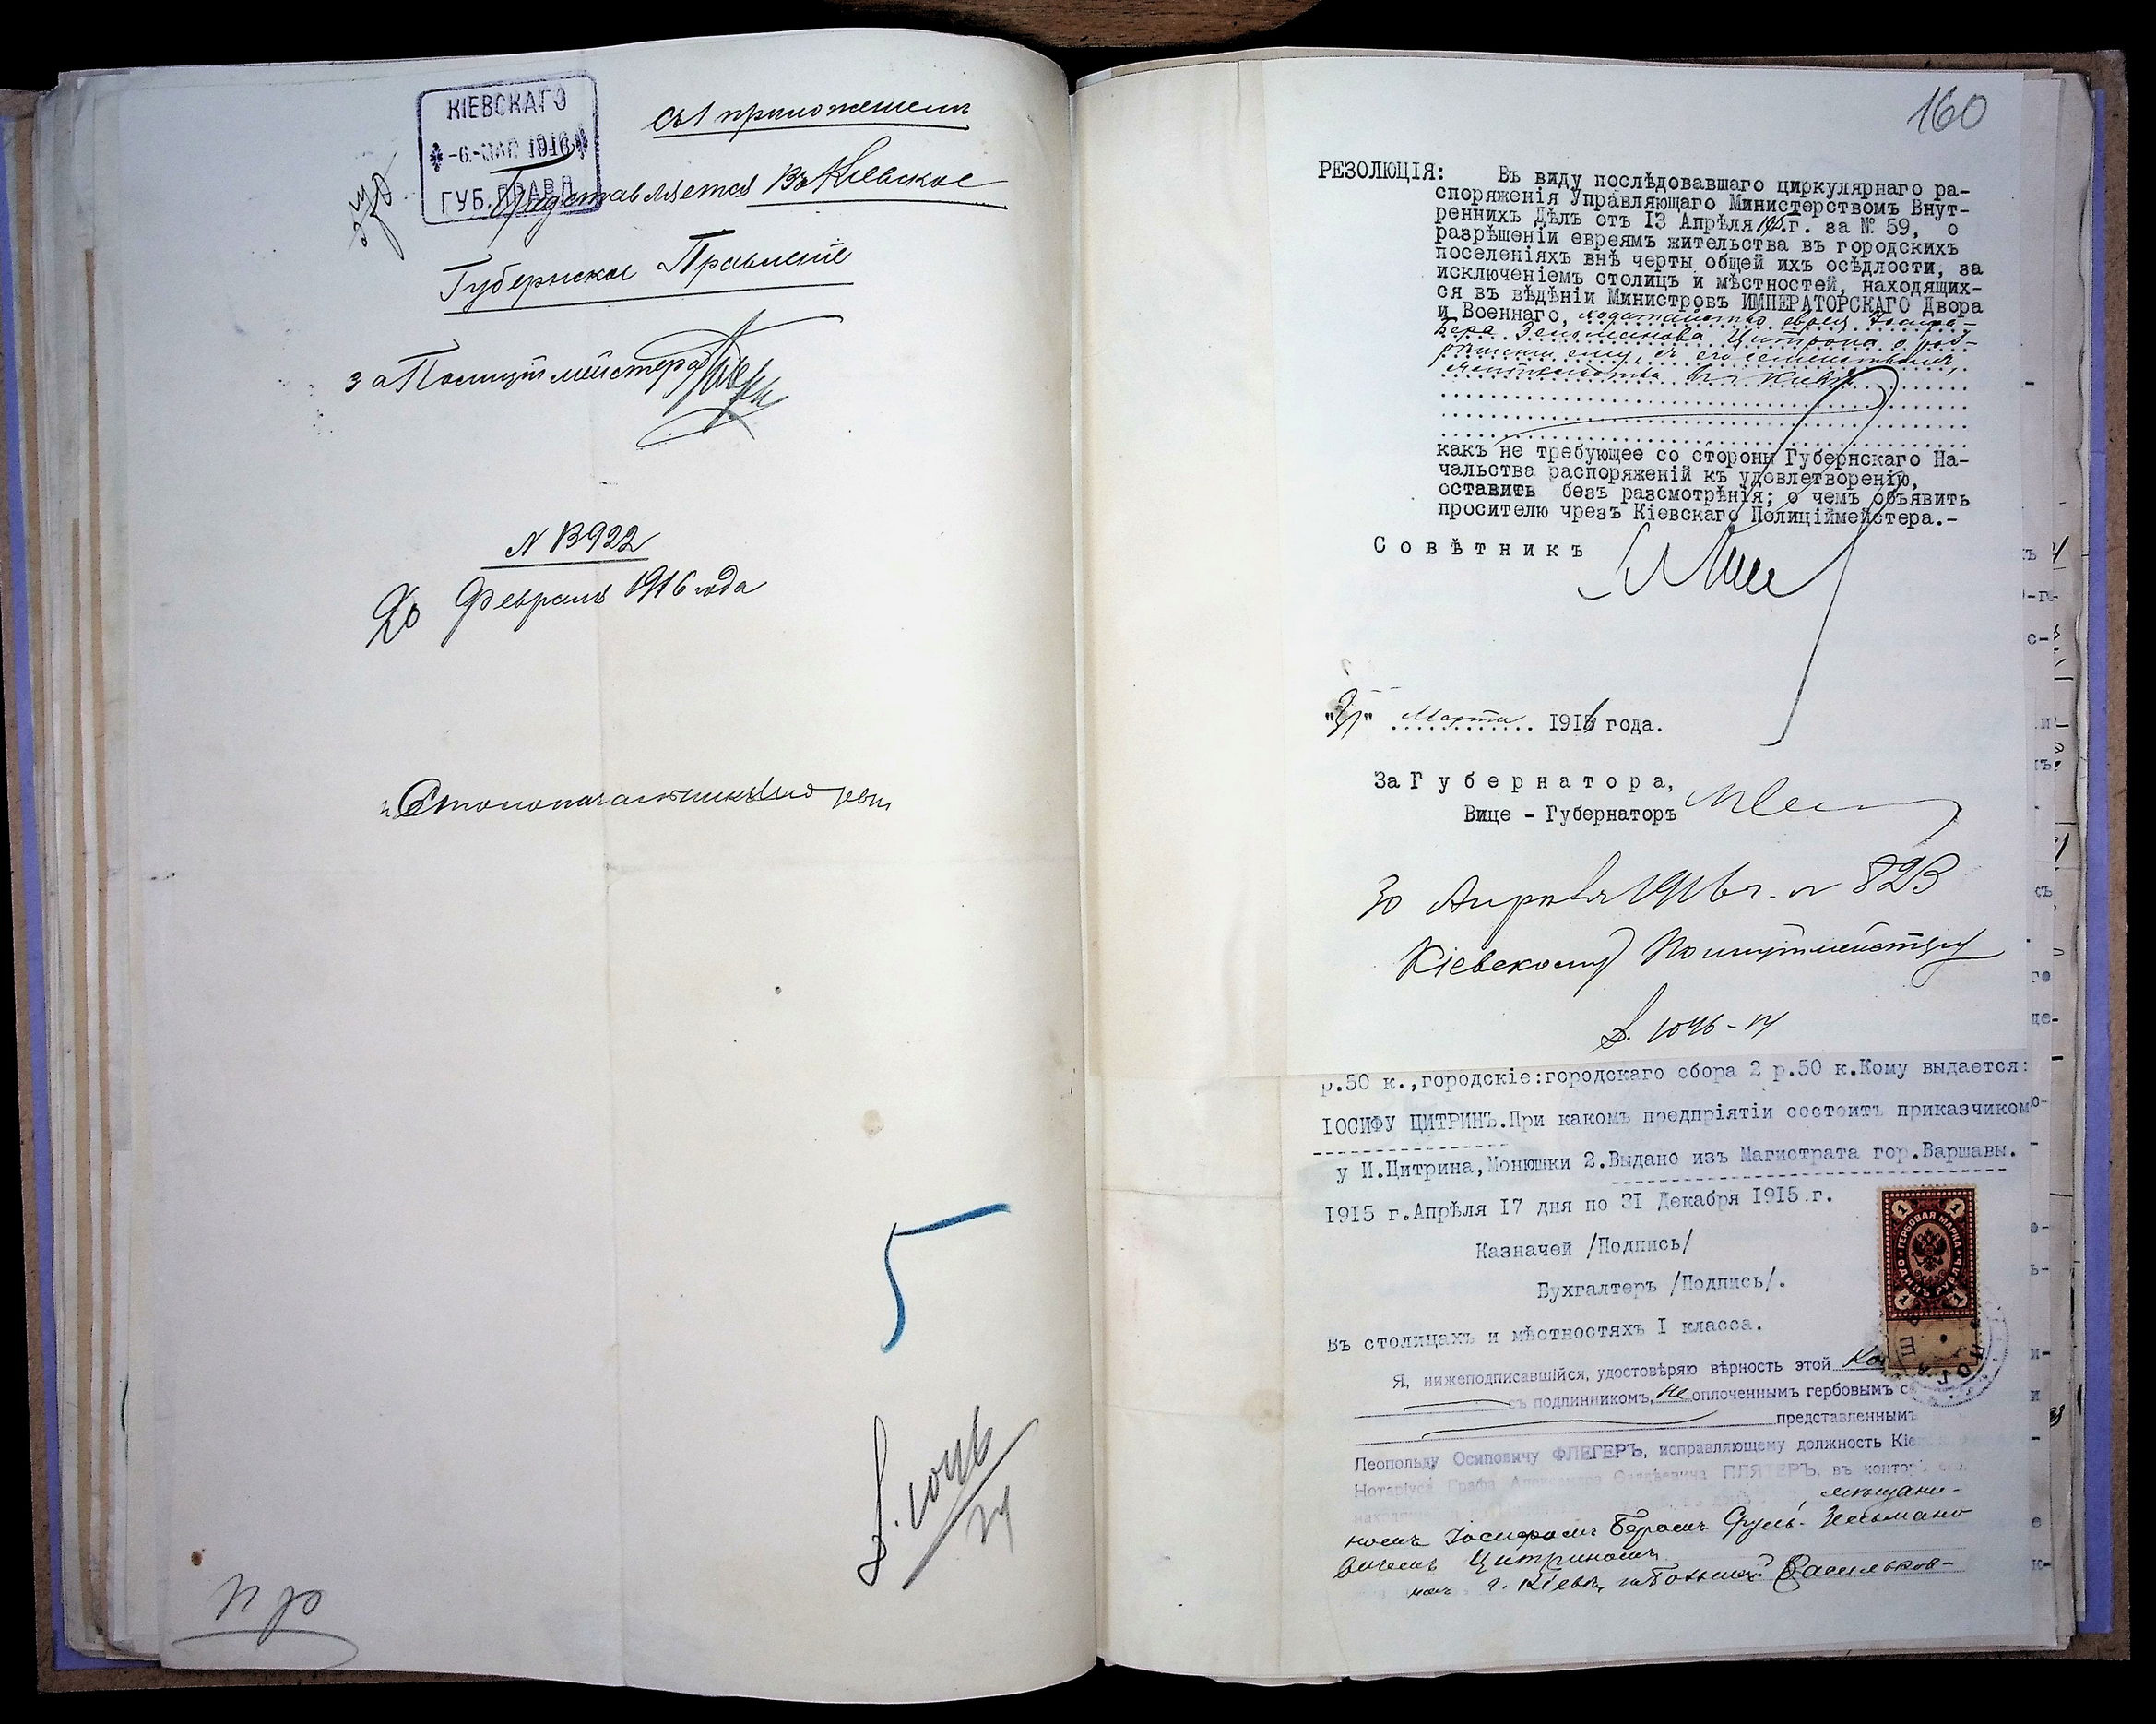 КІЕВСКАГО
-6.-МАР 1916
ГУБ. ПРАВЛ.
съ 1 приложеніем
Представляется въ Кіевское
Губернское Правленіе
за Полиціймейстера
N 13922
20 Февраля 1916 года
Столоначальникъ
5
160
РЕЗОЛЮЦІЯ: Въ виду послѣдовавшаго циркулярнаго ра-
споряженія Управляющаго Министерствомъ Внут-
реннихъ Дѣлъ отъ 13 Апрѣля г. за № 59, о
разрѣшеніи евреямъ жительства въ городскихъ
поселеніяхъ внѣ черты общей ихъ осѣдлости, за
исключеніемъ столицъ и мѣстностей, находящих-
ся въ вѣдѣніи Министровъ ИМПЕРАТОРСКАГО Двора
и Военнаго, ходатайство еврея Іосифа-
Бера Зельманова Цитрона о раз-
рѣшеніи ему, съ его семействомъ,
жительства въ г. Кіевѣ
какъ не требующее со стороны Губернскаго На-
чальства распоряженій къ удовлетворенію,
оставить безъ разсмотрѣнія; о чемъ объявить
просителю чрезъ Кіевскаго Полиціймейстера.-
Совѣтникъ
Марта 1916 года.
За Губернатора,
Вице - Губернаторъ
30 Апрѣля 1916 г. N 823
Кіевскому Полиціймейстеру
р.50 к.,городскіе:городскаго сбора 2 р.50 к.Кому выдается:
ІОСИФУ ЦИТРИНЪ.При какомъ предпріятіи состоитъ приказчикомъ
у И.Цитрина,Монюшки 2.Выдано изъ Магистрата гор.Варшавы.
1915 г.Апрѣля 17 дня по 31 Декабря 1915 г.
Казначей /Подпись/
Бухгалтеръ /Подпись/.
Въ столицахъ и мѣстностяхъ I класса.
1 ГЕРБОВАЯ МАРКА 1
1 ОДИНЪ РУБЛЬ 1
Я, нижеподписавшійся, удостовѣряю вѣрность этой
съ подлинникомъ, не оплоченнымъ гербовымъ
представленнымъ
Леопольду Осиповичу ФЛЕГЕРЪ, исправляющему должность
Нотаріуса Графа Александра ПЛЯТЕРЪ, въ конторѣ его,
мѣщани-
номъ Іосифомъ Беромъ Сруль-Зельмано
вичемъ Цитриномъ
г. Кіевѣ, по Большой Васильков-